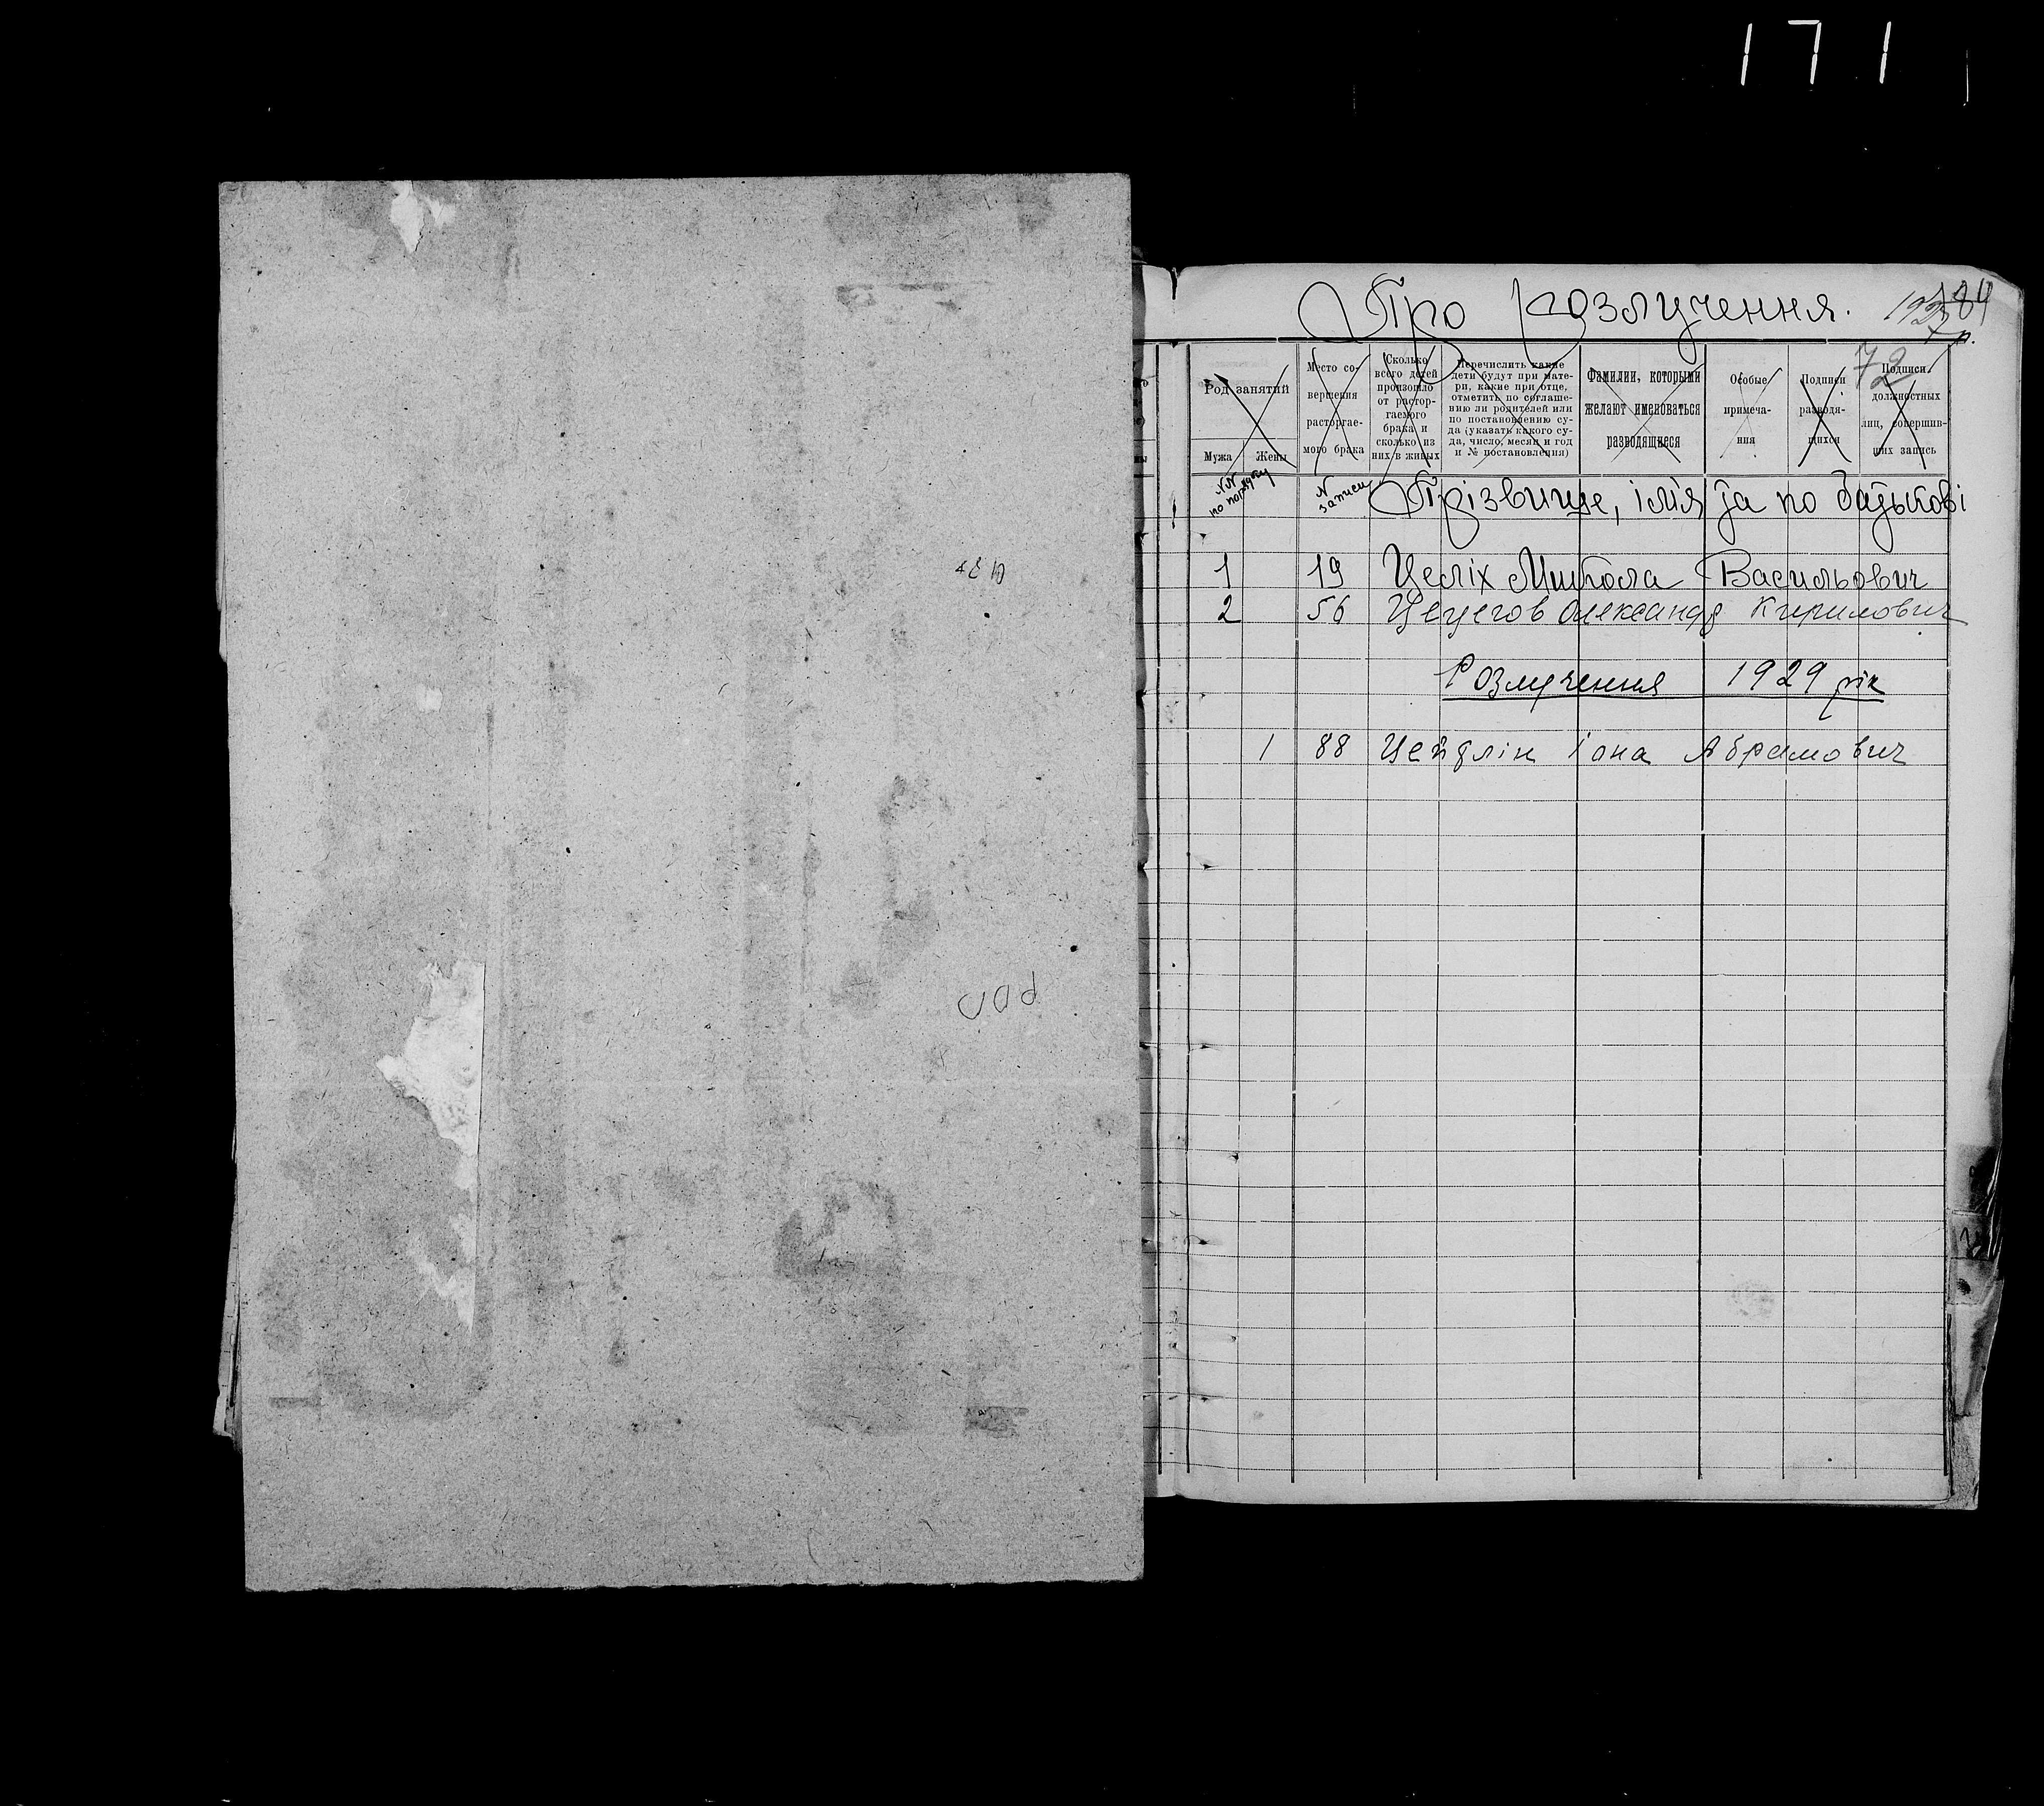 171
Про розлучення.
72
Род занятий
Мужа
Жены
Место со-
вершения
расторгае-
мого брака
Сколько
всего детей
произошло
от растор-
гаемого
брака и
сколько из
них в живых
Перечислить какие
дети будут при мате-
ри, какие при отце,
отметить по соглаше-
нию ли родителей или
по постановлению су-
да (указать какого су-
да, число, месяц и год
и № постановления)
Фамилии, которыми
желают именоваться
разводящиеся
Особые
примеча-
ния
Подписи
разводя-
щихся
Подписи
должностных
лиц, совершив-
ших запись
NN по порядку
N записи
Прізвище, ім'я та по батькові
1 19 Целіх Микола Васильович
2 56 Цецегов Олександр Кирилович
Розлучення 1929 рік
1 88 Цейдлін Іона Абрамович